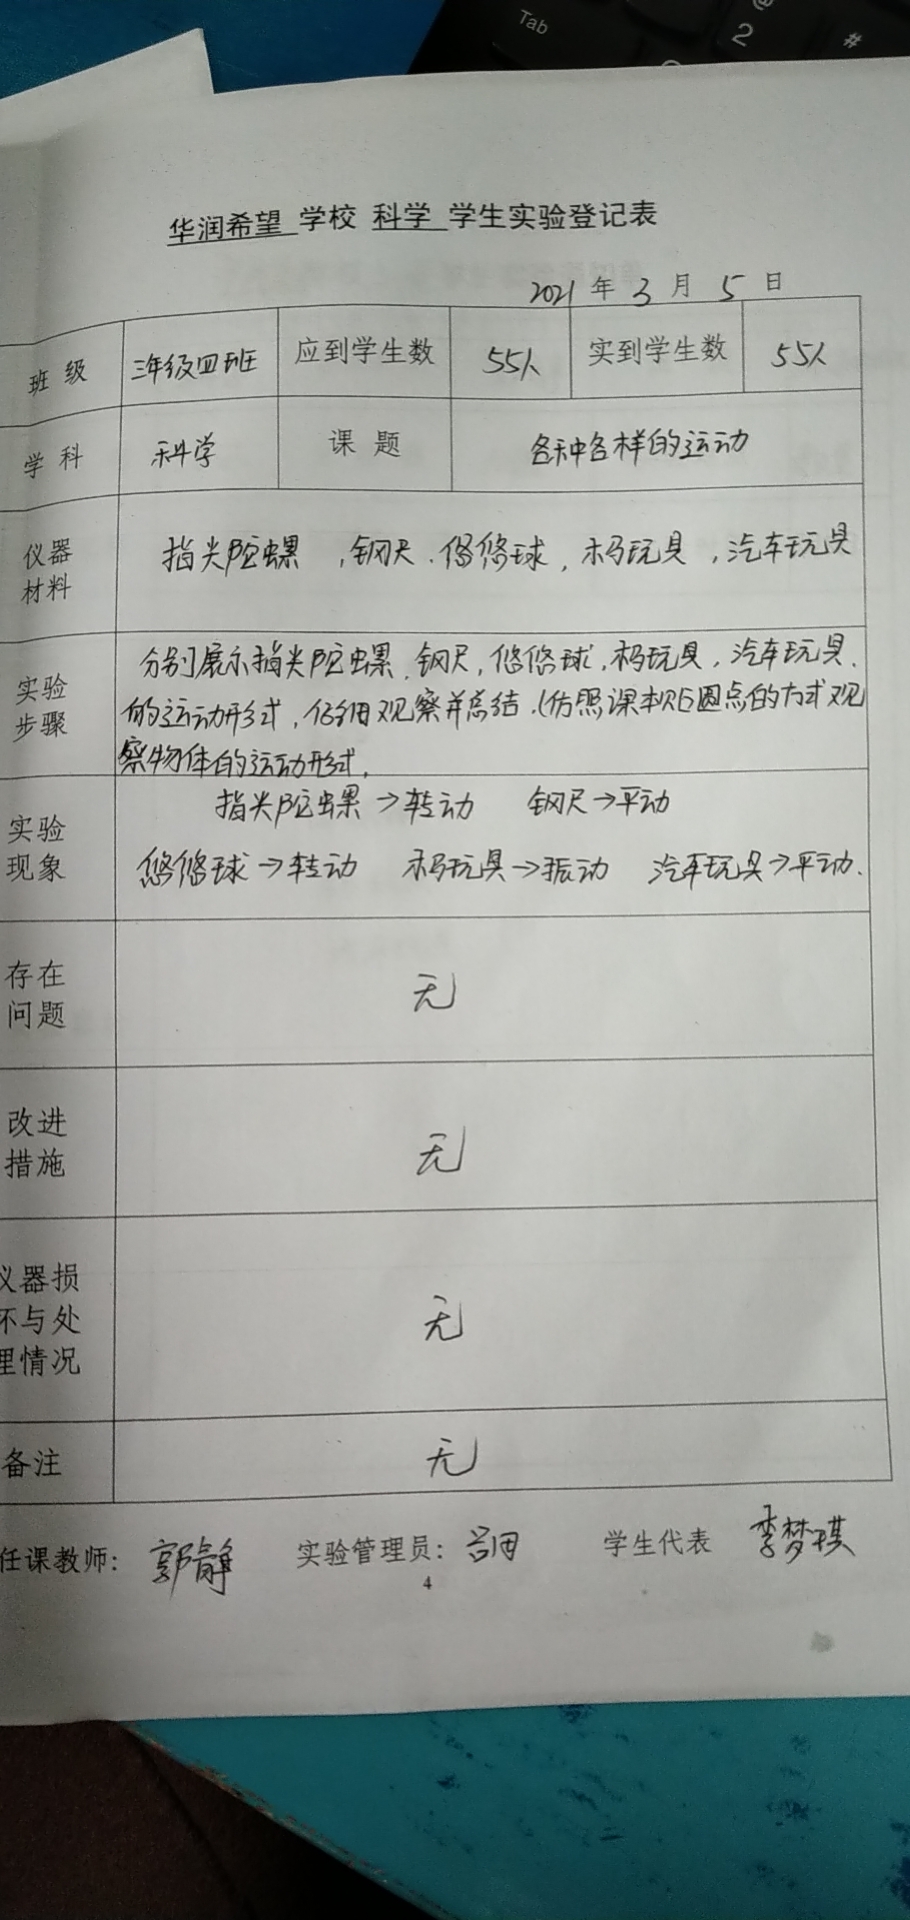 Tab
2
@
#
华润希望 学校 科学 学生实验登记表
2021 年 3 月 5 日
班级 三年级四班 应到学生数 55人 实到学生数 55人
学科 科学 课题 各种各样的运动
仪器
材料
指尖陀螺 ,钢尺、悠悠球, 木马玩具 ,汽车玩具
实验
步骤
分别展示指尖陀螺、钢尺,悠悠球,木马玩具,汽车玩具、
的运动形式,仔细观察并总结.(仿照课本贴圆点的方式观
察物体的运动形式,
实验
现象
指尖陀螺→转动 钢尺→平动
悠悠球→转动 木马玩具→振动 汽车玩具→平动.
存在
问题
无
改进
措施
无
仪器损
坏与处
理情况
无
备注 无
任课教师: 郭静 实验管理员: 学生代表 李梦琪
4